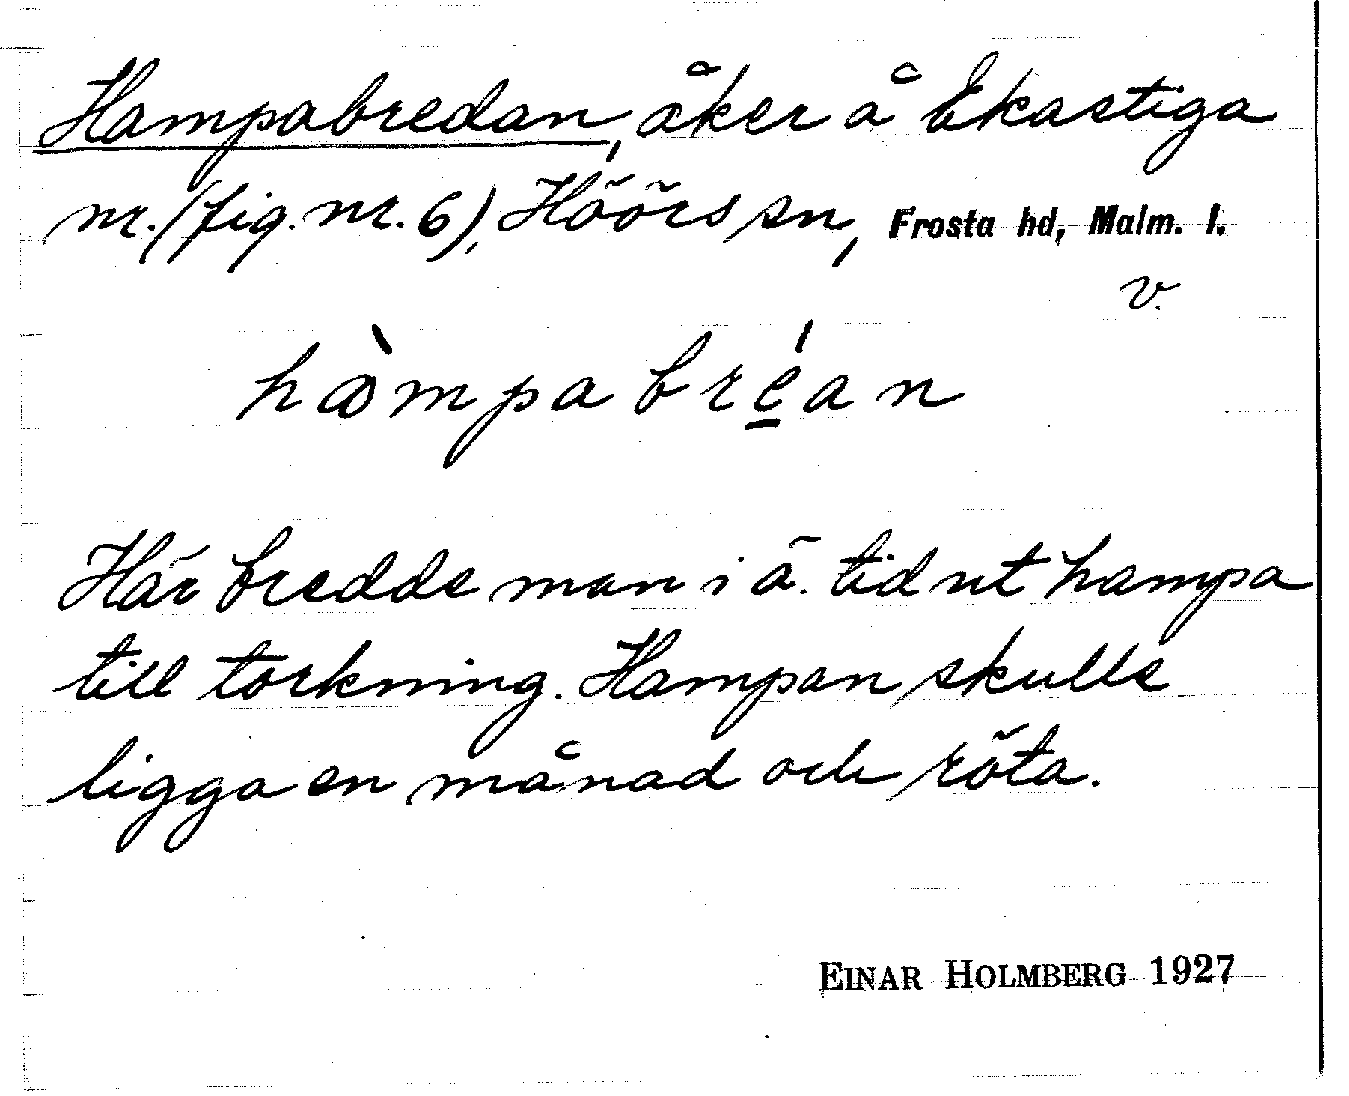 Hampabredan, åker å Ekastiga
nr. (fig. nr. 6), Höörs sn, Frosta hd, Malm. l.
v.
hàmpabré̲an
Här bredde man i ä. tid ut hampa
till torkning. Hampan skulle
ligga en månad och röta.
EINAR HOLMBERG 1927